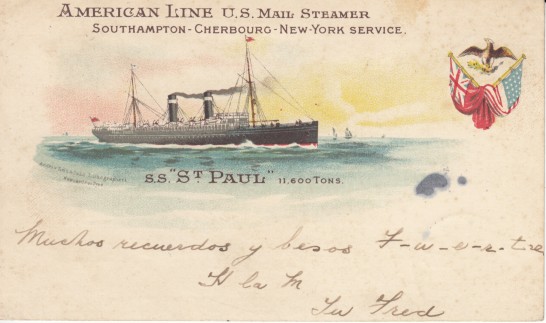 AMERICAN LINE U.S. MAIL STEAMER
SOUTHAMPTON-CHERBOURG-NEW-YORK SERVICE.
S.S. "ST PAUL" 11,600 TONS.
Muchos recuerdos y besos F-u-e-r-t-e
H la M
Tu Fred